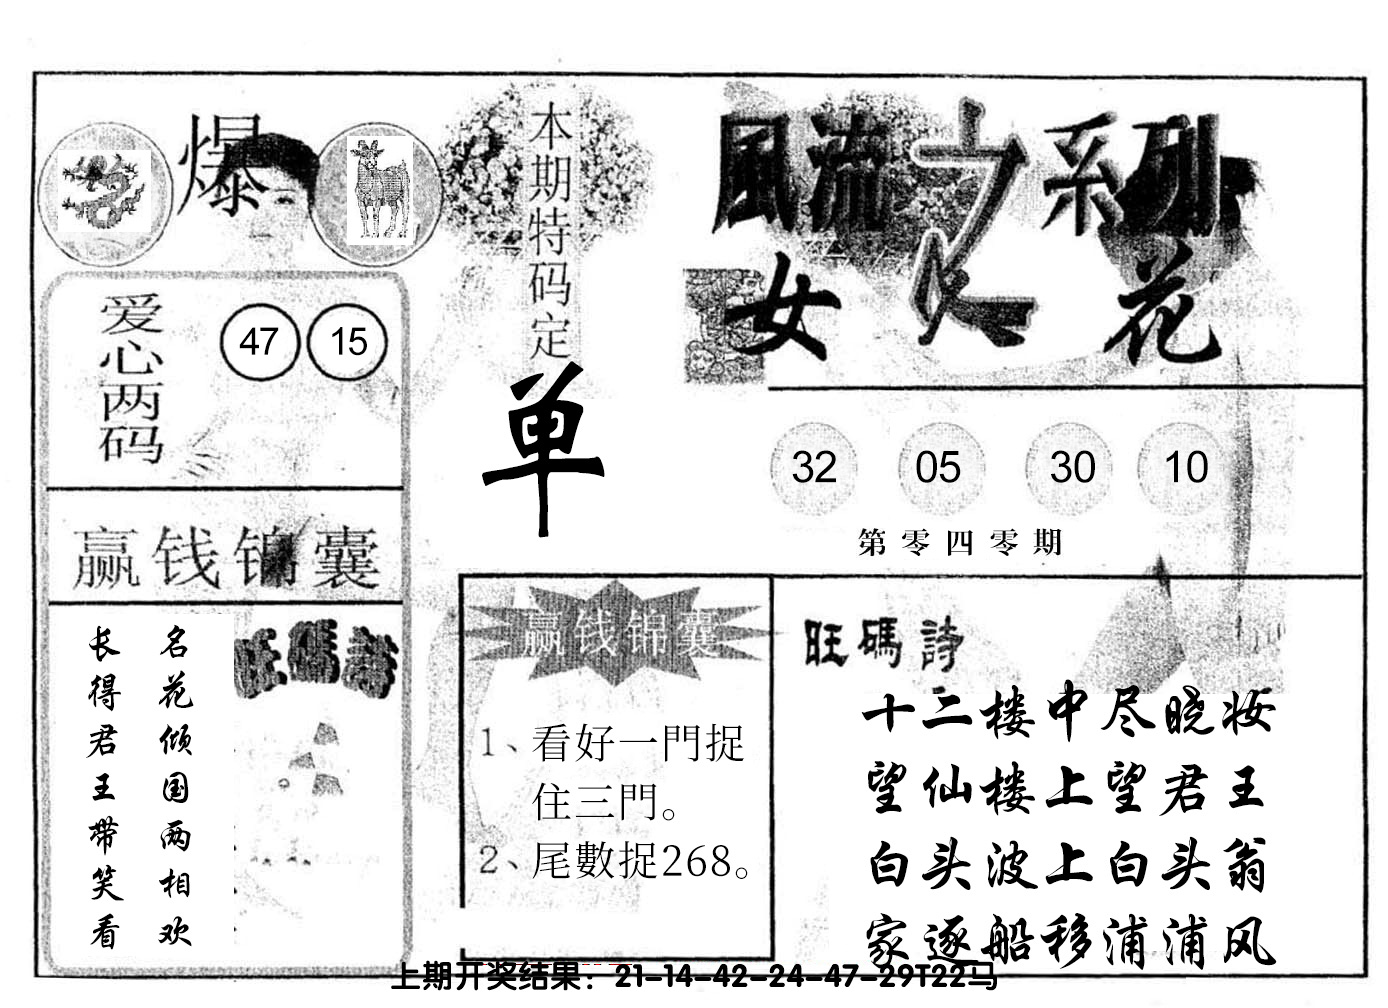 爆
爱心两码
47 15
赢钱锦囊
名花倾国两相欢
长得君王带笑看
旺碼詩
本期特码定
单
風流之系列
女人花
32 05 30 10
第零四零期
赢钱锦囊
1、看好一門捉
住三門。
2、尾數捉268。
旺碼詩
十二楼中尽晓妆
望仙楼上望君王
白头波上白头翁
家逐船移浦浦风
上期开奖结果：21-14-42-24-47-29T22马